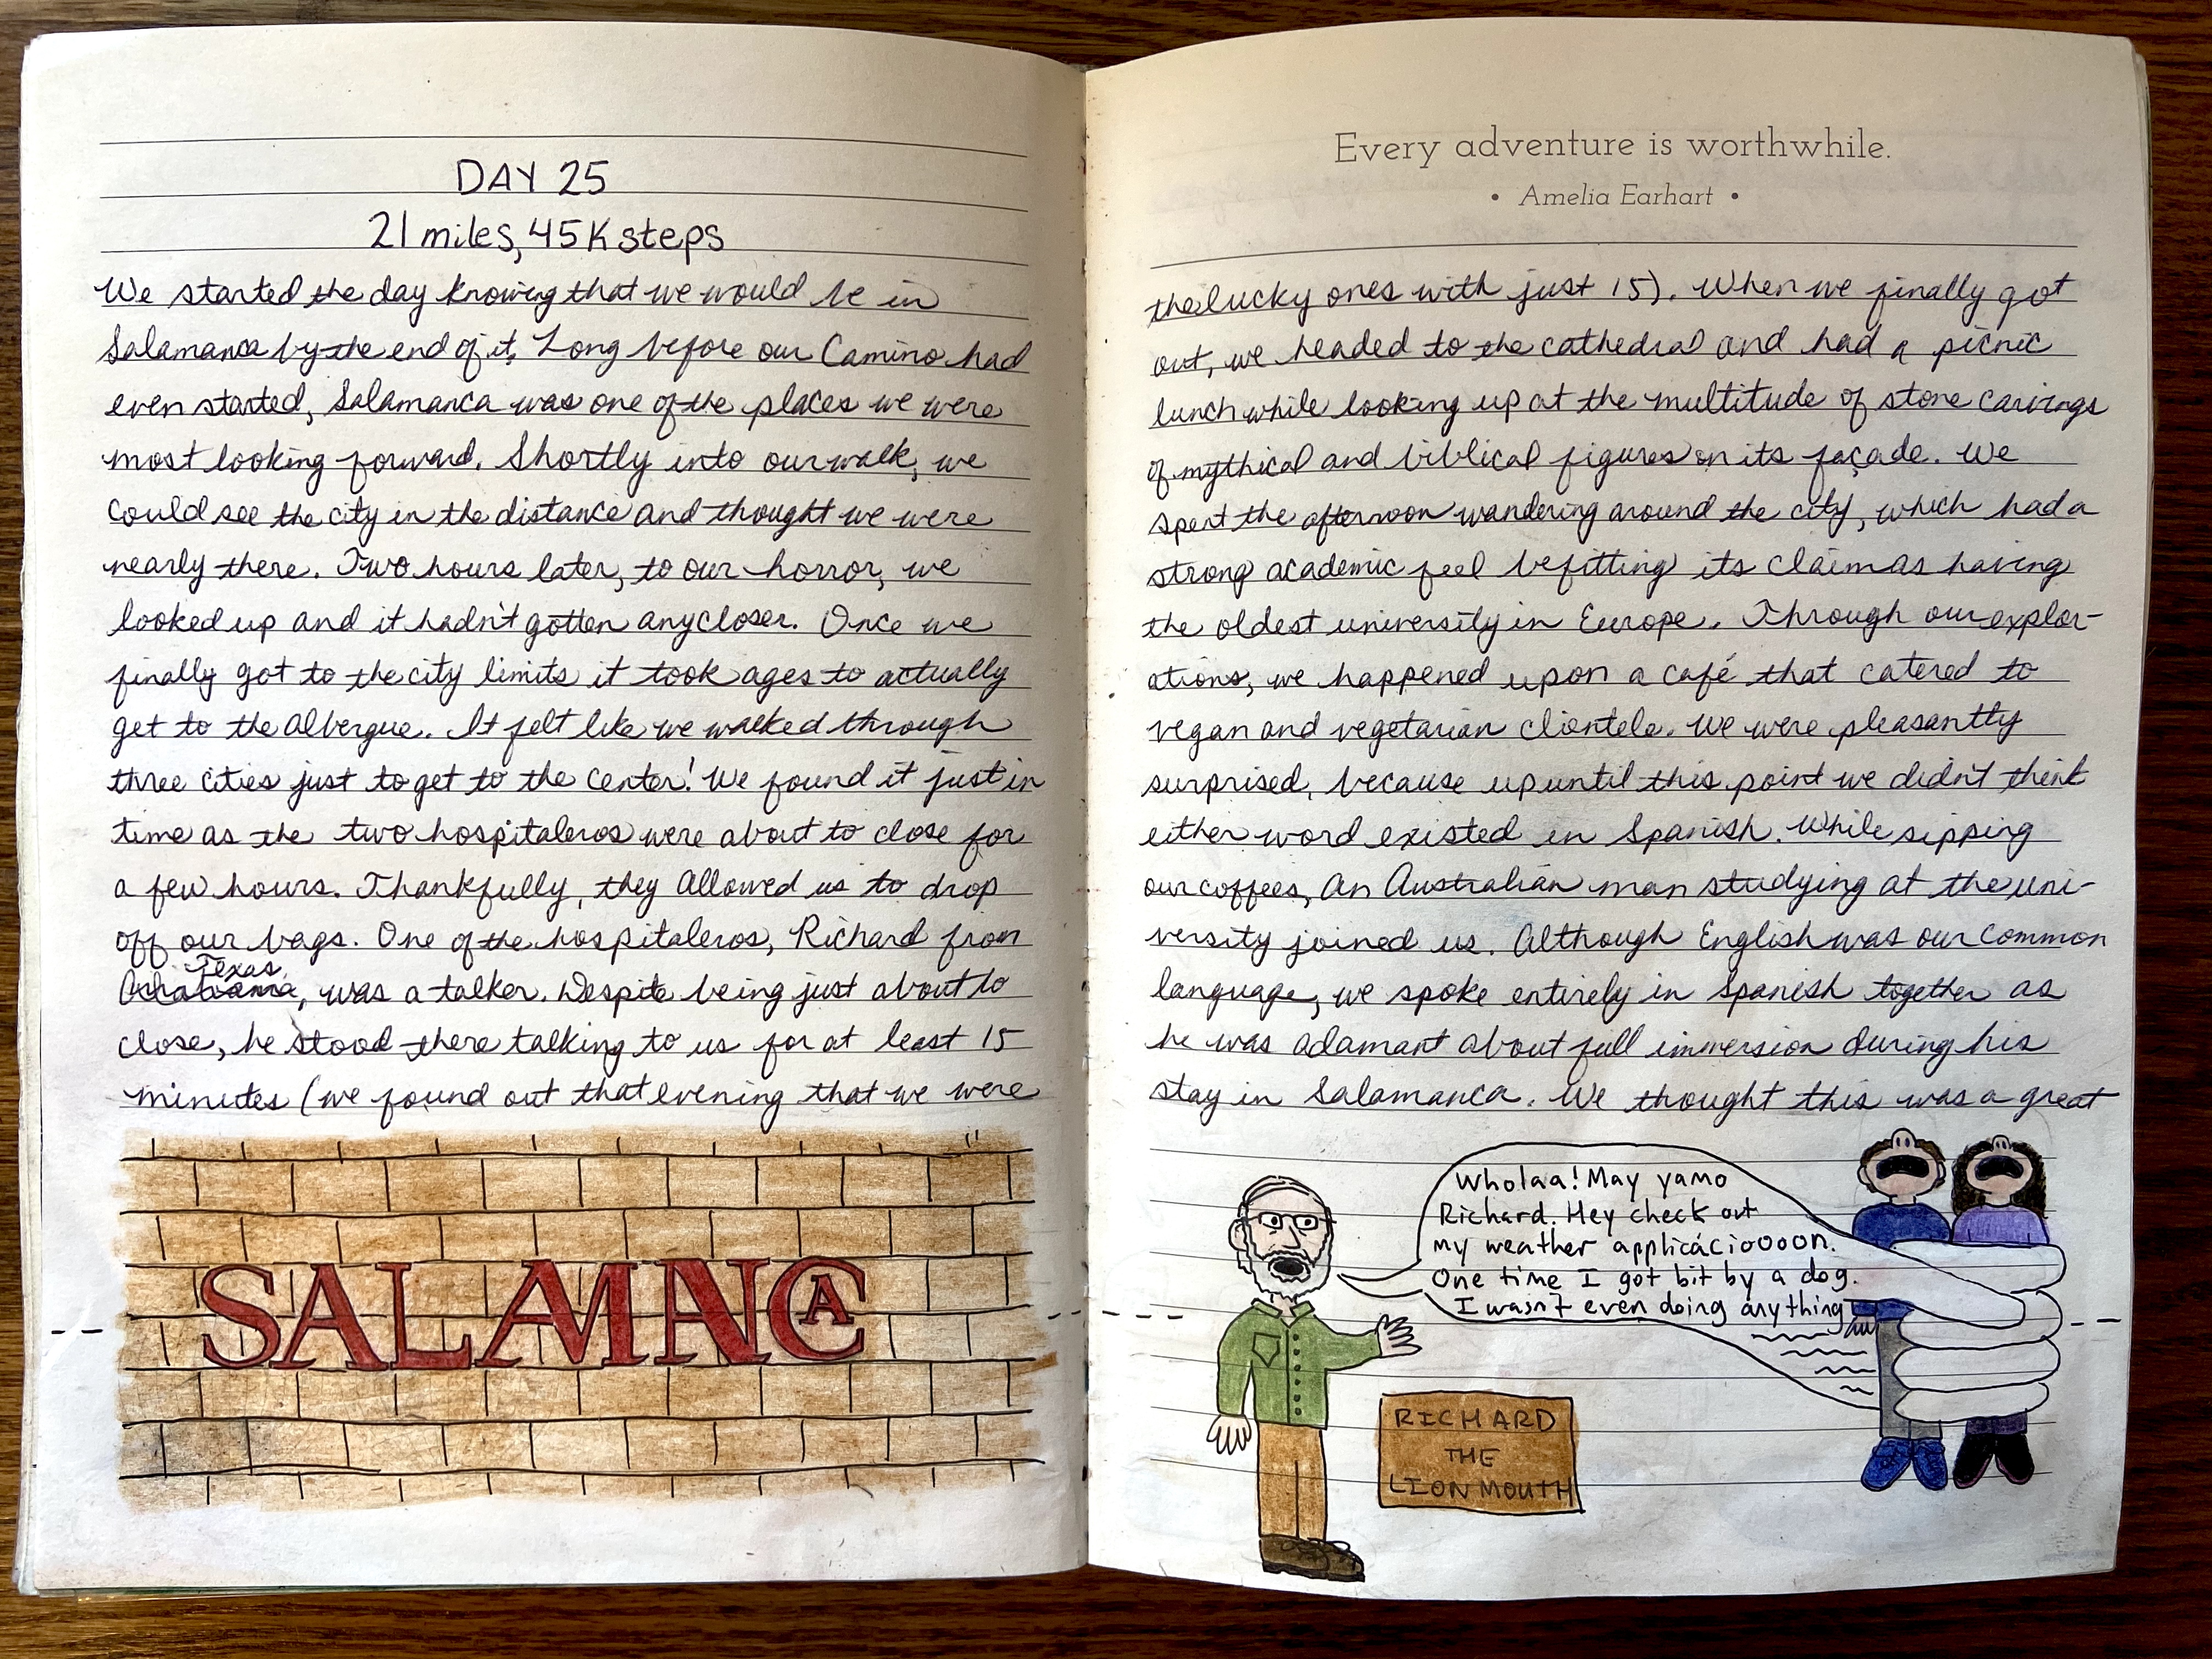 DAY 25
21 miles, 45K steps
We started the day knowing that we would be in
Salamanca by the end of it. Long before our Camino had
even started, Salamanca was one of the places we were
most looking forward. Shortly into our walk, we
could see the city in the distance and thought we were
nearly there. Two hours later, to our horror, we
looked up and it hadn't gotten any closer. Once we
finally got to the city limits it took ages to actually
get to the albergue. It felt like we walked through
three cities just to get to the center! We found it just in
time as the two hospitaleros were about to close for
a few hours. Thankfully, they allowed us to drop
off our bags. One of the hospitaleros, Richard from
Texas, was a talker. Despite being just about to
close, he stood there talking to us for at least 15
minutes (we found out that evening that we were
SALAMANCA
Every adventure is worthwhile.
• Amelia Earhart •
the lucky ones with just 15). When we finally got
out, we headed to the cathedral and had a picnic
lunch while looking up at the multitude of stone carvings
of mythical and biblical figures on its façade. We
spent the afternoon wandering around the city, which had a
strong academic feel befitting its claim as having
the oldest university in Europe. Through our explor-
ations, we happened upon a café that catered to
vegan and vegetarian clientele. We were pleasantly
surprised, because up until this point we didn't think
either word existed in Spanish. While sipping
our coffees, an Australian man studying at the uni-
versity joined us. Although English was our common
language, we spoke entirely in Spanish together as
he was adamant about full immersion during his
stay in Salamanca. We thought this was a great
Wholaa! May yamo
Richard. Hey check out
my weather applicácioooon.
One time I got bit by a dog.
I wasn't even doing anything
RICHARD
THE
LION MOUTH